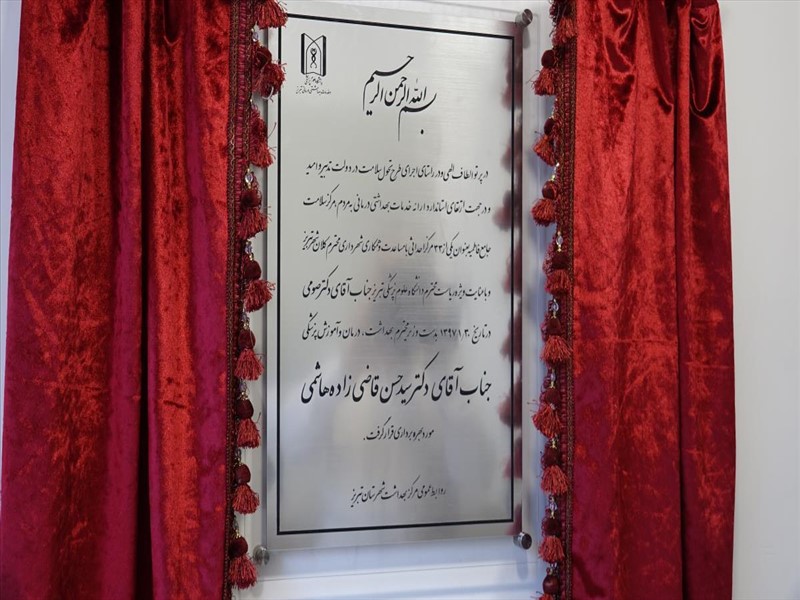 بسم الله الرحمن الرحیم
در پرتو الطاف الهی و در راستای اجرای طرح تحول سلامت در دولت تدبیر و امید
و در جهت ارتقای استاندارد ارائه خدمات بهداشتی درمانی به مردم، مرکز سلامت
جامع فاطمیه بعنوان یکی از ۳۳ مرکز احداثی با مساعدت و همکاری شهرداری محترم کلان شهر تبریز
و با عنایت ویژه ریاست محترم دانشگاه علوم پزشکی تبریز جناب آقای دکتر صومی
در تاریخ ۱۳۹۷/۱/۳۰ بدست وزیر محترم بهداشت، درمان و آموزش پزشکی
جناب آقای دکتر سید حسن قاضی زاده هاشمی
مورد بهره برداری قرار گرفت.
روابط عمومی مرکز بهداشت شهرستان تبریز